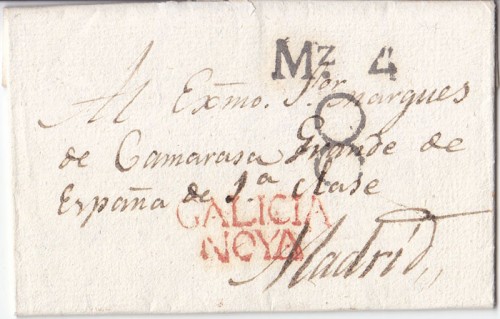 Mz. 4
Al Exmo. Sor marques
de Camarasa Grande de
España de 1.ª clase
GALICIA
NOYA
Madrid